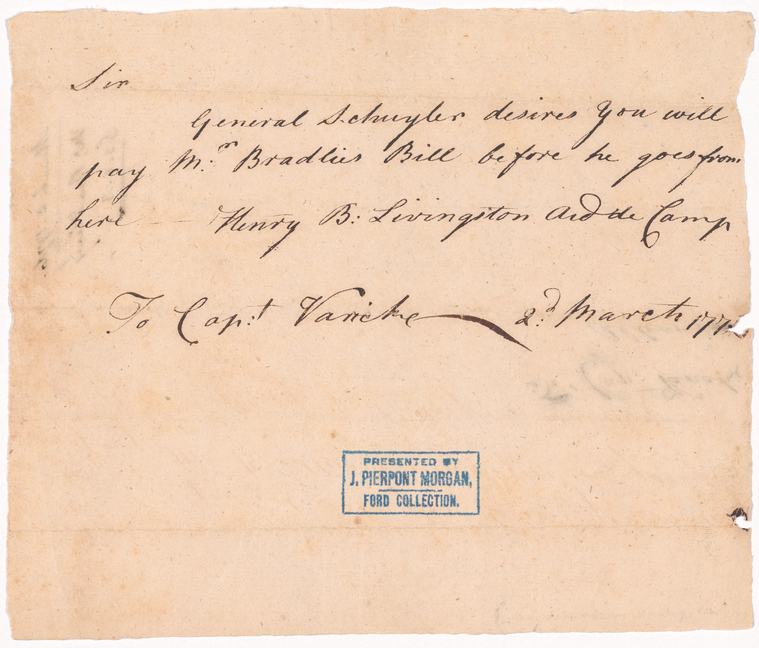 Sir
General Schuyler desires you will
pay Mr. Bradlies Bill before he goes from
here — Henry B: Livingston Aid de Camp
To Capt. Varicke — 2d. March
PRESENTED BY
J. PIERPONT MORGAN,
FORD COLLECTION.